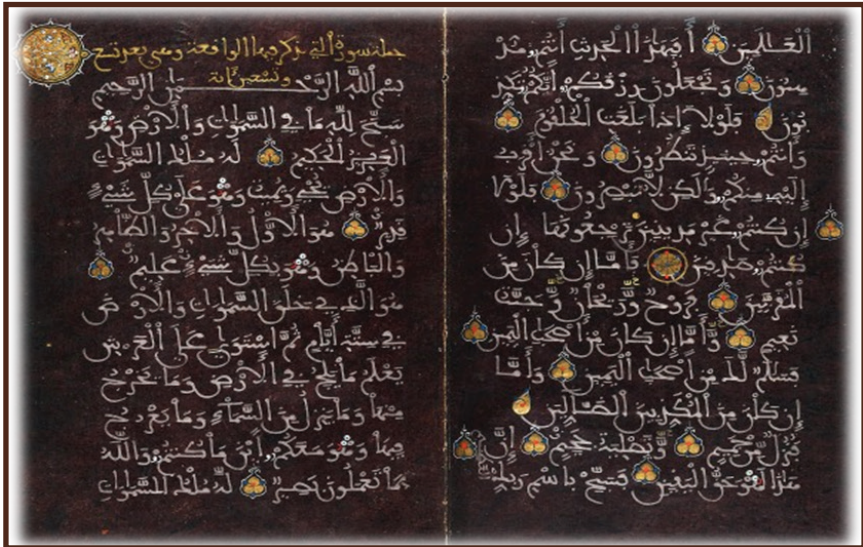 الْعَٰلَمِينَ أَفَبِهَٰذَا الْحَدِيثِ أَنتُم مُّدْ
هِنُونَ وَتَجْعَلُونَ رِزْقَكُمْ أَنَّكُمْ تُكَذِّ
بُونَ فَلَوْلَا إِذَا بَلَغَتِ الْحُلْقُومَ
وَأَنتُمْ حِينَئِذٍ تَنظُرُونَ وَنَحْنُ أَقْرَبُ
إِلَيْهِ مِنكُمْ وَلَٰكِن لَّا تُبْصِرُونَ فَلَوْلَا
إِن كُنتُمْ غَيْرَ مَدِينِينَ تَرْجِعُونَهَا إِن
كُنتُمْ صَٰدِقِينَ فَأَمَّا إِن كَانَ مِنَ
الْمُقَرَّبِينَ فَرَوْحٌ وَرَيْحَانٌ وَجَنَّتُ
نَعِيمٍ وَأَمَّا إِن كَانَ مِنْ أَصْحَٰبِ الْيَمِينِ
فَسَلَٰمٌ لَّكَ مِنْ أَصْحَٰبِ الْيَمِينِ وَأَمَّا
إِن كَانَ مِنَ الْمُكَذِّبِينَ الضَّالِّينَ
فَنُزُلٌ مِّنْ حَمِيمٍ وَتَصْلِيَةُ جَحِيمٍ إِنَّ
هَٰذَا لَهُوَ حَقُّ الْيَقِينِ فَسَبِّحْ بِاسْمِ رَبِّكَ
سورة التي يذكر فيها الواقعة وهي
وتسعين
بِسْمِ اللَّهِ الرَّحْمَٰنِ الرَّحِيمِ
سَبَّحَ لِلَّهِ مَا فِي السَّمَٰوَٰتِ وَالْأَرْضِ وَهُوَ
الْعَزِيزُ الْحَكِيمُ لَهُ مُلْكُ السَّمَٰوَٰتِ
وَالْأَرْضِ يُحْيِي وَيُمِيتُ وَهُوَ عَلَىٰ كُلِّ شَيْءٍ
قَدِيرٌ هُوَ الْأَوَّلُ وَالْآخِرُ وَالظَّاهِرُ
وَالْبَاطِنُ وَهُوَ بِكُلِّ شَيْءٍ عَلِيمٌ
هُوَ الَّذِي خَلَقَ السَّمَٰوَٰتِ وَالْأَرْضَ
فِي سِتَّةِ أَيَّامٍ ثُمَّ اسْتَوَىٰ عَلَى الْعَرْشِ
يَعْلَمُ مَا يَلِجُ فِي الْأَرْضِ وَمَا يَخْرُجُ
مِنْهَا وَمَا يَنزِلُ مِنَ السَّمَاءِ وَمَا يَعْرُجُ
فِيهَا وَهُوَ مَعَكُمْ أَيْنَ مَا كُنتُمْ وَاللَّهُ
بِمَا تَعْمَلُونَ بَصِيرٌ لَهُ مُلْكُ السَّمَٰوَٰتِ